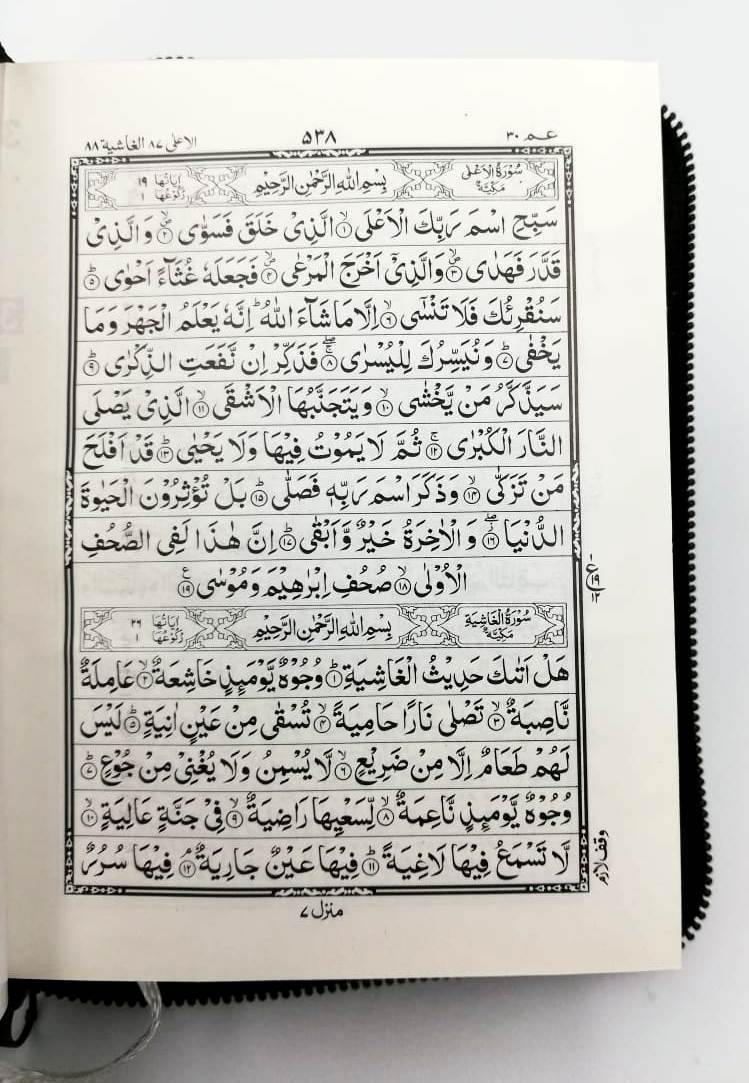 عـم ٣٠ ٥٣٨ الاعلى ٨٧ الغاشية ٨٨
سُوْرَةُ الْاَعْلٰى مَكِّيَّةٌ بِسْمِ اللهِ الرَّحْمٰنِ الرَّحِيْمِ اٰيَاتُهَا ١٩ رُكُوْعُهَا ١
سَبِّحِ اسْمَ رَبِّكَ الْاَعْلَى ۙ﴿١﴾ الَّذِىْ خَلَقَ فَسَوّٰى ۪ۙ﴿٢﴾ وَالَّذِىْ
قَدَّرَ فَهَدٰى ۪ۙ﴿٣﴾ وَالَّذِىْۤ اَخْرَجَ الْمَرْعٰى ۪ۙ﴿٤﴾ فَجَعَلَهٗ غُثَآءً اَحْوٰى ؕ﴿٥﴾
سَنُقْرِئُكَ فَلَا تَنْسٰٓى ۙ﴿٦﴾ اِلَّا مَا شَآءَ اللهُ ؕ اِنَّهٗ يَعْلَمُ الْجَهْرَ وَمَا
يَخْفٰى ؕ﴿٧﴾ وَنُيَسِّرُكَ لِلْيُسْرٰى ۖۚ﴿٨﴾ فَذَكِّرْ اِنْ نَّفَعَتِ الذِّكْرٰى ؕ﴿٩﴾
سَيَذَّكَّرُ مَنْ يَّخْشٰى ۙ﴿١٠﴾ وَيَتَجَنَّبُهَا الْاَشْقَى ۙ﴿١١﴾ الَّذِىْ يَصْلَى
النَّارَ الْكُبْرٰى ۚ﴿١٢﴾ ثُمَّ لَا يَمُوْتُ فِيْهَا وَلَا يَحْيٰى ؕ﴿١٣﴾ قَدْ اَفْلَحَ
مَنْ تَزَكّٰى ۙ﴿١٤﴾ وَذَكَرَ اسْمَ رَبِّهٖ فَصَلّٰى ؕ﴿١٥﴾ بَلْ تُؤْثِرُوْنَ الْحَيٰوةَ
الدُّنْيَا ۖ﴿١٦﴾ وَالْاٰخِرَةُ خَيْرٌ وَّاَبْقٰى ؕ﴿١٧﴾ اِنَّ هٰذَا لَفِى الصُّحُفِ
الْاُوْلٰى ۙ﴿١٨﴾ صُحُفِ اِبْرٰهِيْمَ وَمُوْسٰى ﴿١٩﴾ع
١
ع ١٩
١٢
سُوْرَةُ الْغَاشِيَةِ مَكِّيَّةٌ بِسْمِ اللهِ الرَّحْمٰنِ الرَّحِيْمِ اٰيَاتُهَا ٢٦ رُكُوْعُهَا ١
هَلْ اَتٰىكَ حَدِيْثُ الْغَاشِيَةِ ؕ﴿١﴾ وُجُوْهٌ يَّوْمَئِذٍ خَاشِعَةٌ ۙ﴿٢﴾ عَامِلَةٌ
نَّاصِبَةٌ ۙ﴿٣﴾ تَصْلٰى نَارًا حَامِيَةً ۙ﴿٤﴾ تُسْقٰى مِنْ عَيْنٍ اٰنِيَةٍ ؕ﴿٥﴾ لَيْسَ
لَهُمْ طَعَامٌ اِلَّا مِنْ ضَرِيْعٍ ۙ﴿٦﴾ لَّا يُسْمِنُ وَلَا يُغْنِىْ مِنْ جُوْعٍ ؕ﴿٧﴾
وُجُوْهٌ يَّوْمَئِذٍ نَّاعِمَةٌ ۙ﴿٨﴾ لِّسَعْيِهَا رَاضِيَةٌ ۙ﴿٩﴾ فِىْ جَنَّةٍ عَالِيَةٍ ۙ﴿١٠﴾
لَّا تَسْمَعُ فِيْهَا لَاغِيَةً ؕ﴿١١﴾ فِيْهَا عَيْنٌ جَارِيَةٌ ۘ﴿١٢﴾ فِيْهَا سُرُرٌ
وقف لازم
منزل ٧